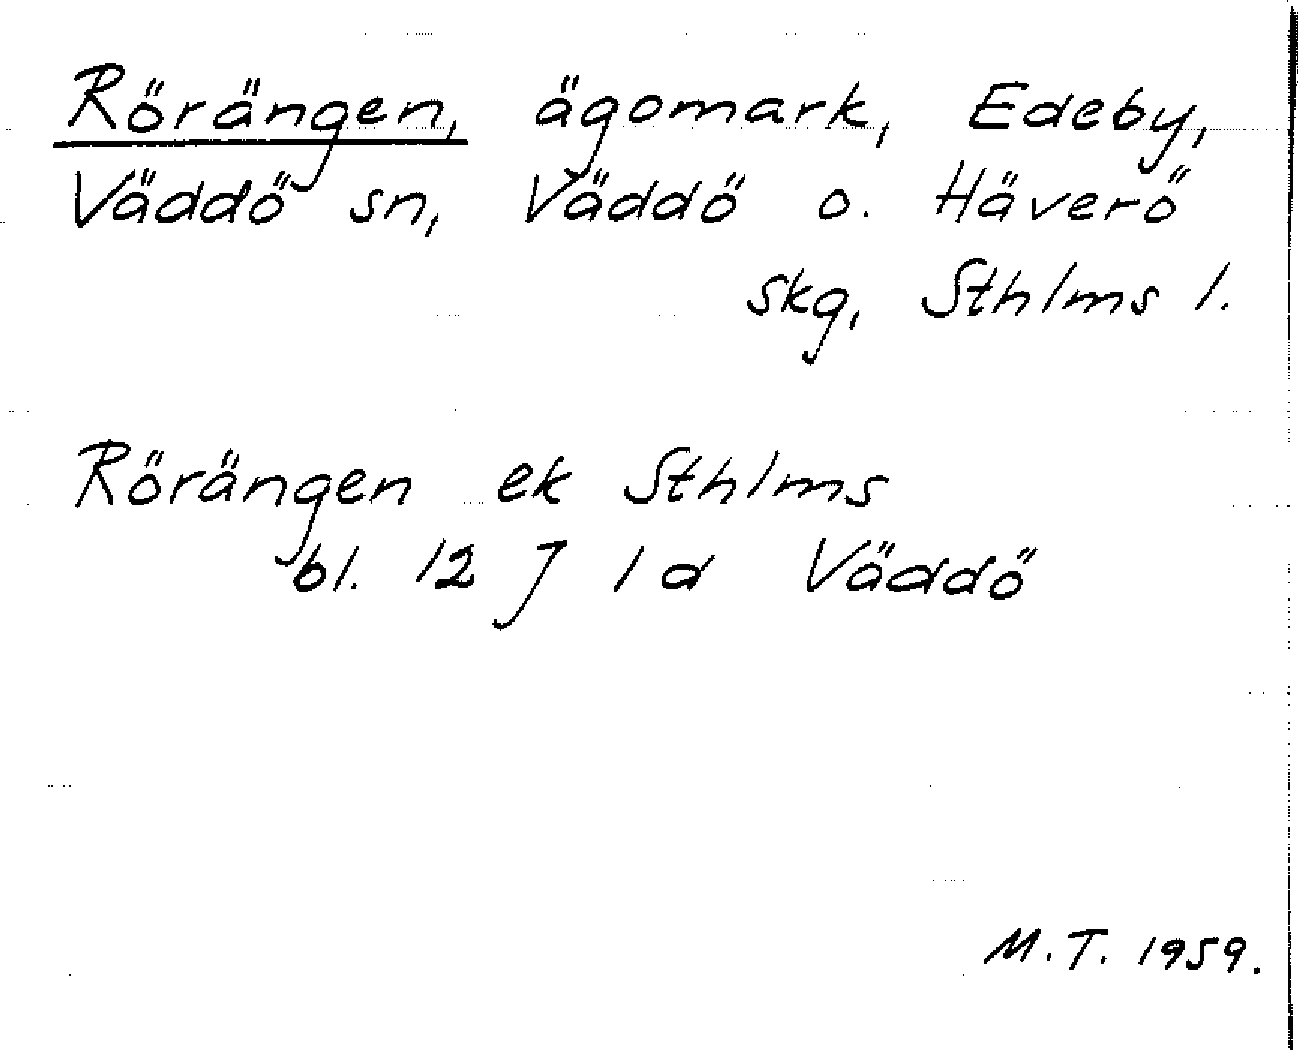 Rörängen, ägomark, Edeby,
Väddö sn, Väddö o. Häverö
skg, Sthlms l.
Rörängen ek Sthlms
bl. 12 J 1 d Väddö
M.T. 1959.